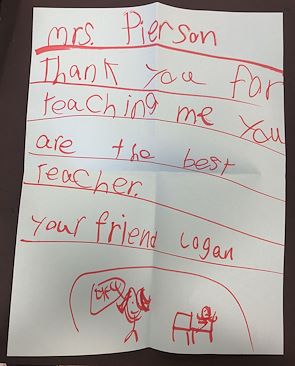 mrs. Pierson
Thank you for
teaching me you
are the best
teacher.
your friend logan